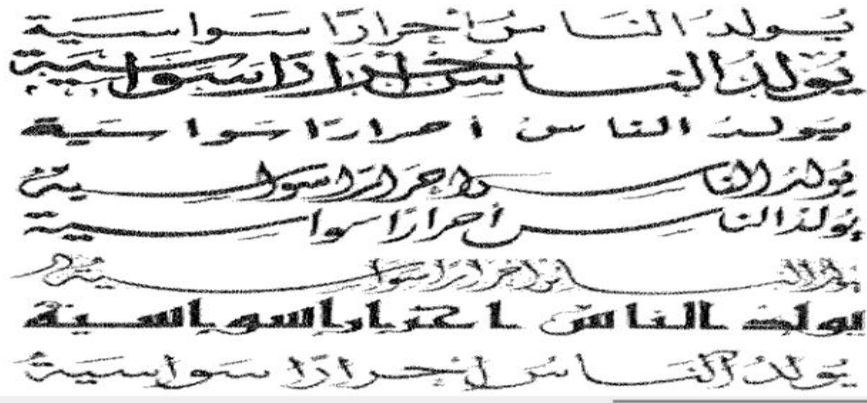 يُولَدُ النَّاسُ أَحْرَارًا سَوَاسِيَةً
يُوَلَدُ النَّاسُ أَحْرَارًا سَوَاسِيَة
يُولَدُ الناس أحرارًا سَواسَية
يُولدُ الناس احرَارَاً سَواسِيةُ
يُولَدُ الناس أحرارًا سواسِية
يولد الناس احرارا سواسية
يولدُ الناسُ احراراً سواسية
يُولَدُ النَّاسُ احْرارًا سَواسِيَة